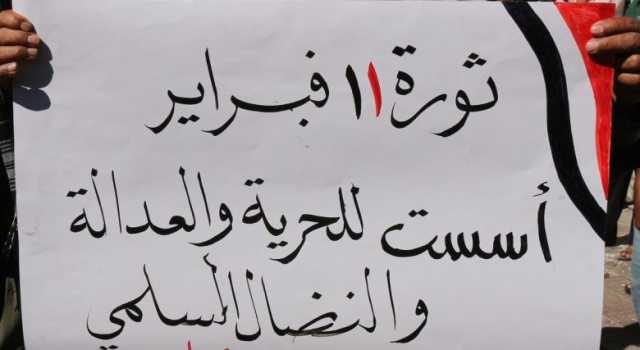 ثورة ١١ فبراير
أسست للحرية والعدالة
والنضال السلمي